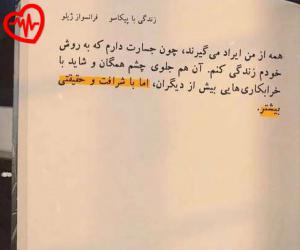 زندگی با پیکاسو فرانسواز ژیلو
همه از من ایراد می‌گیرند، چون جسارت دارم که به روش
خودم زندگی کنم. آن هم جلوی چشم همگان و شاید با
خرابکاری‌هایی بیش از دیگران، اما با شرافت و حقیقتی
بیشتر.